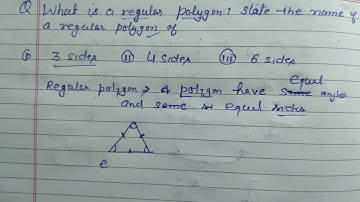 Q What is a regular polygon? State the name of
a regular polygon of
(i) 3 sides (ii) 4 sides (iii) 6 sides
equal
Regular polygon → A polygon have same angles
and same equal sides
e